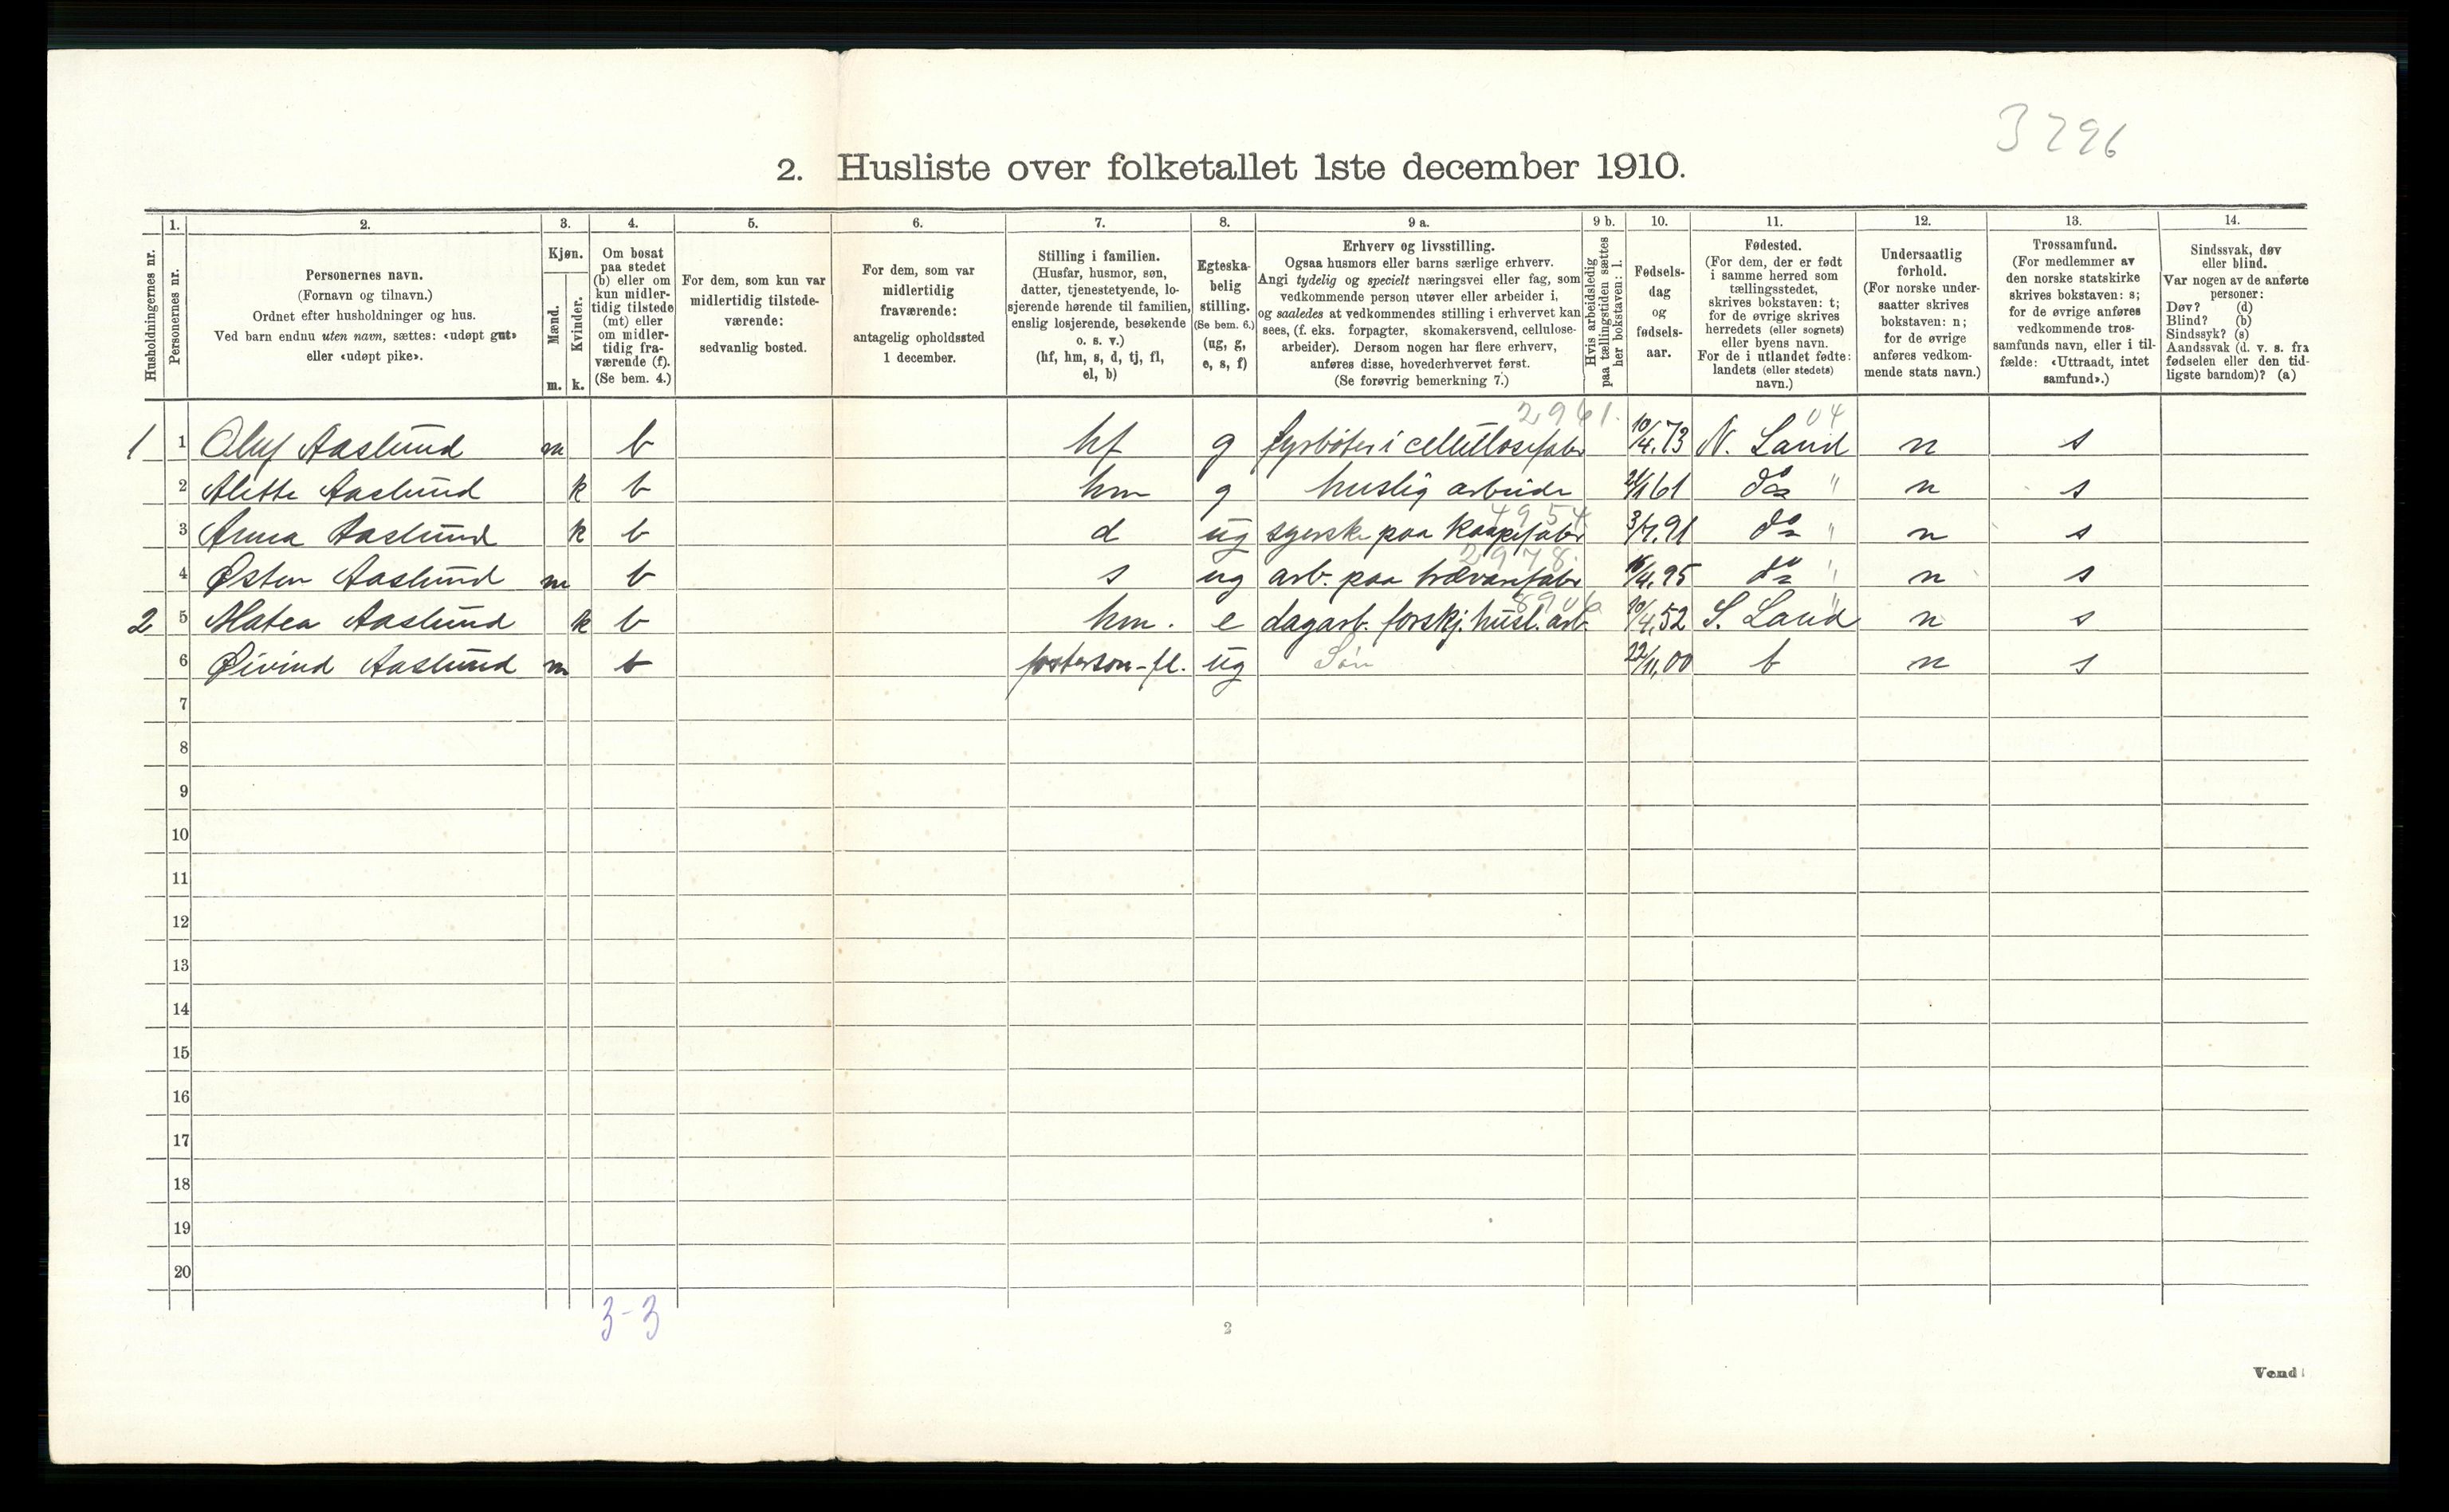 3296
2. Husliste over folketallet 1ste december 1910.
1. 2. 3. 4. 5. 6. 7. 8. 9 a. 9 b. 10. 11. 12. 13. 14.
Husholdningernes nr.
Personernes nr.
Personernes navn.
(Fornavn og tilnavn.)
Ordnet efter husholdninger og hus.
Ved barn endnu uten navn, sættes: «udøpt gut»
eller «udøpt pike».
Kjøn.
Mænd.
Kvinder.
m. k.
Om bosat
paa stedet
(b) eller om
kun midler-
tidig tilstede
(mt) eller
om midler-
tidig fra-
værende (f).
(Se bem. 4.)
For dem, som kun var
midlertidig tilstede-
værende:
sedvanlig bosted.
For dem, som var
midlertidig
fraværende:
antagelig opholdssted
1 december.
Stilling i familien.
(Husfar, husmor, søn,
datter, tjenestetyende, lo-
sjerende hørende til familien,
enslig losjerende, besøkende
o. s. v.)
(hf, hm, s, d, tj, fl,
el, b)
Egteska-
belig
stilling.
(Se bem. 6.)
(ug, g,
e, s, f)
Erhverv og livsstilling.
Ogsaa husmors eller barns særlige erhverv.
Angi tydelig og specielt næringsvei eller fag, som
vedkommende person utøver eller arbeider i,
og saaledes at vedkommendes stilling i erhvervet kan
sees, (f. eks. forpagter, skomakersvend, cellulose-
arbeider). Dersom nogen har flere erhverv,
anføres disse, hovederhvervet først.
(Se forøvrig bemerkning 7.)
Hvis arbeidsledig
paa tællingstiden sættes
her bokstaven: l.
Fødsels-
dag
og
fødsels-
aar.
Fødested.
(For dem, der er født
i samme herred som
tællingsstedet,
skrives bokstaven: t;
for de øvrige skrives
herredets (eller sognets)
eller byens navn.
For de i utlandet fødte:
landets (eller stedets)
navn.)
Undersaatlig
forhold.
(For norske under-
saatter skrives
bokstaven: n;
for de øvrige
anføres vedkom-
mende stats navn.)
Trossamfund.
(For medlemmer av
den norske statskirke
skrives bokstaven: s;
for de øvrige anføres
vedkommende tros-
samfunds navn, eller i til-
fælde: «Uttraadt, intet
samfund».)
Sindssvak, døv
eller blind.
Var nogen av de anførte
personer:
Døv? (d)
Blind? (b)
Sindssyk? (s)
Aandssvak (d. v. s. fra
fødselen eller den tid-
ligste barndom)? (a)
2961. 04
1 1 Oluf Aaslund m b hf g fyrbøter i cellulosefabr 10/4.73 N. Land n s
2 Alette Aaslund k b hm g huslig arbeide 61 do " n s
4954
3 Anna Aaslund k b d ug syerske paa kaapefabr 3/7.91 do " n s
2978.
4 Østen Aaslund m b s ug arb. paa trævarefabr 16/4.95 do " n s
2 5 Matea Aaslund k b hm. e dagarb. forskj. husl. arb. 20/4.52 S. Land n s
6 Øivind Aaslund m b fosterson - fl. ug Søn 22/11.00 t n s
7
8
9
10
11
12
13
14
15
16
17
18
19
20
3-3
2
Vend